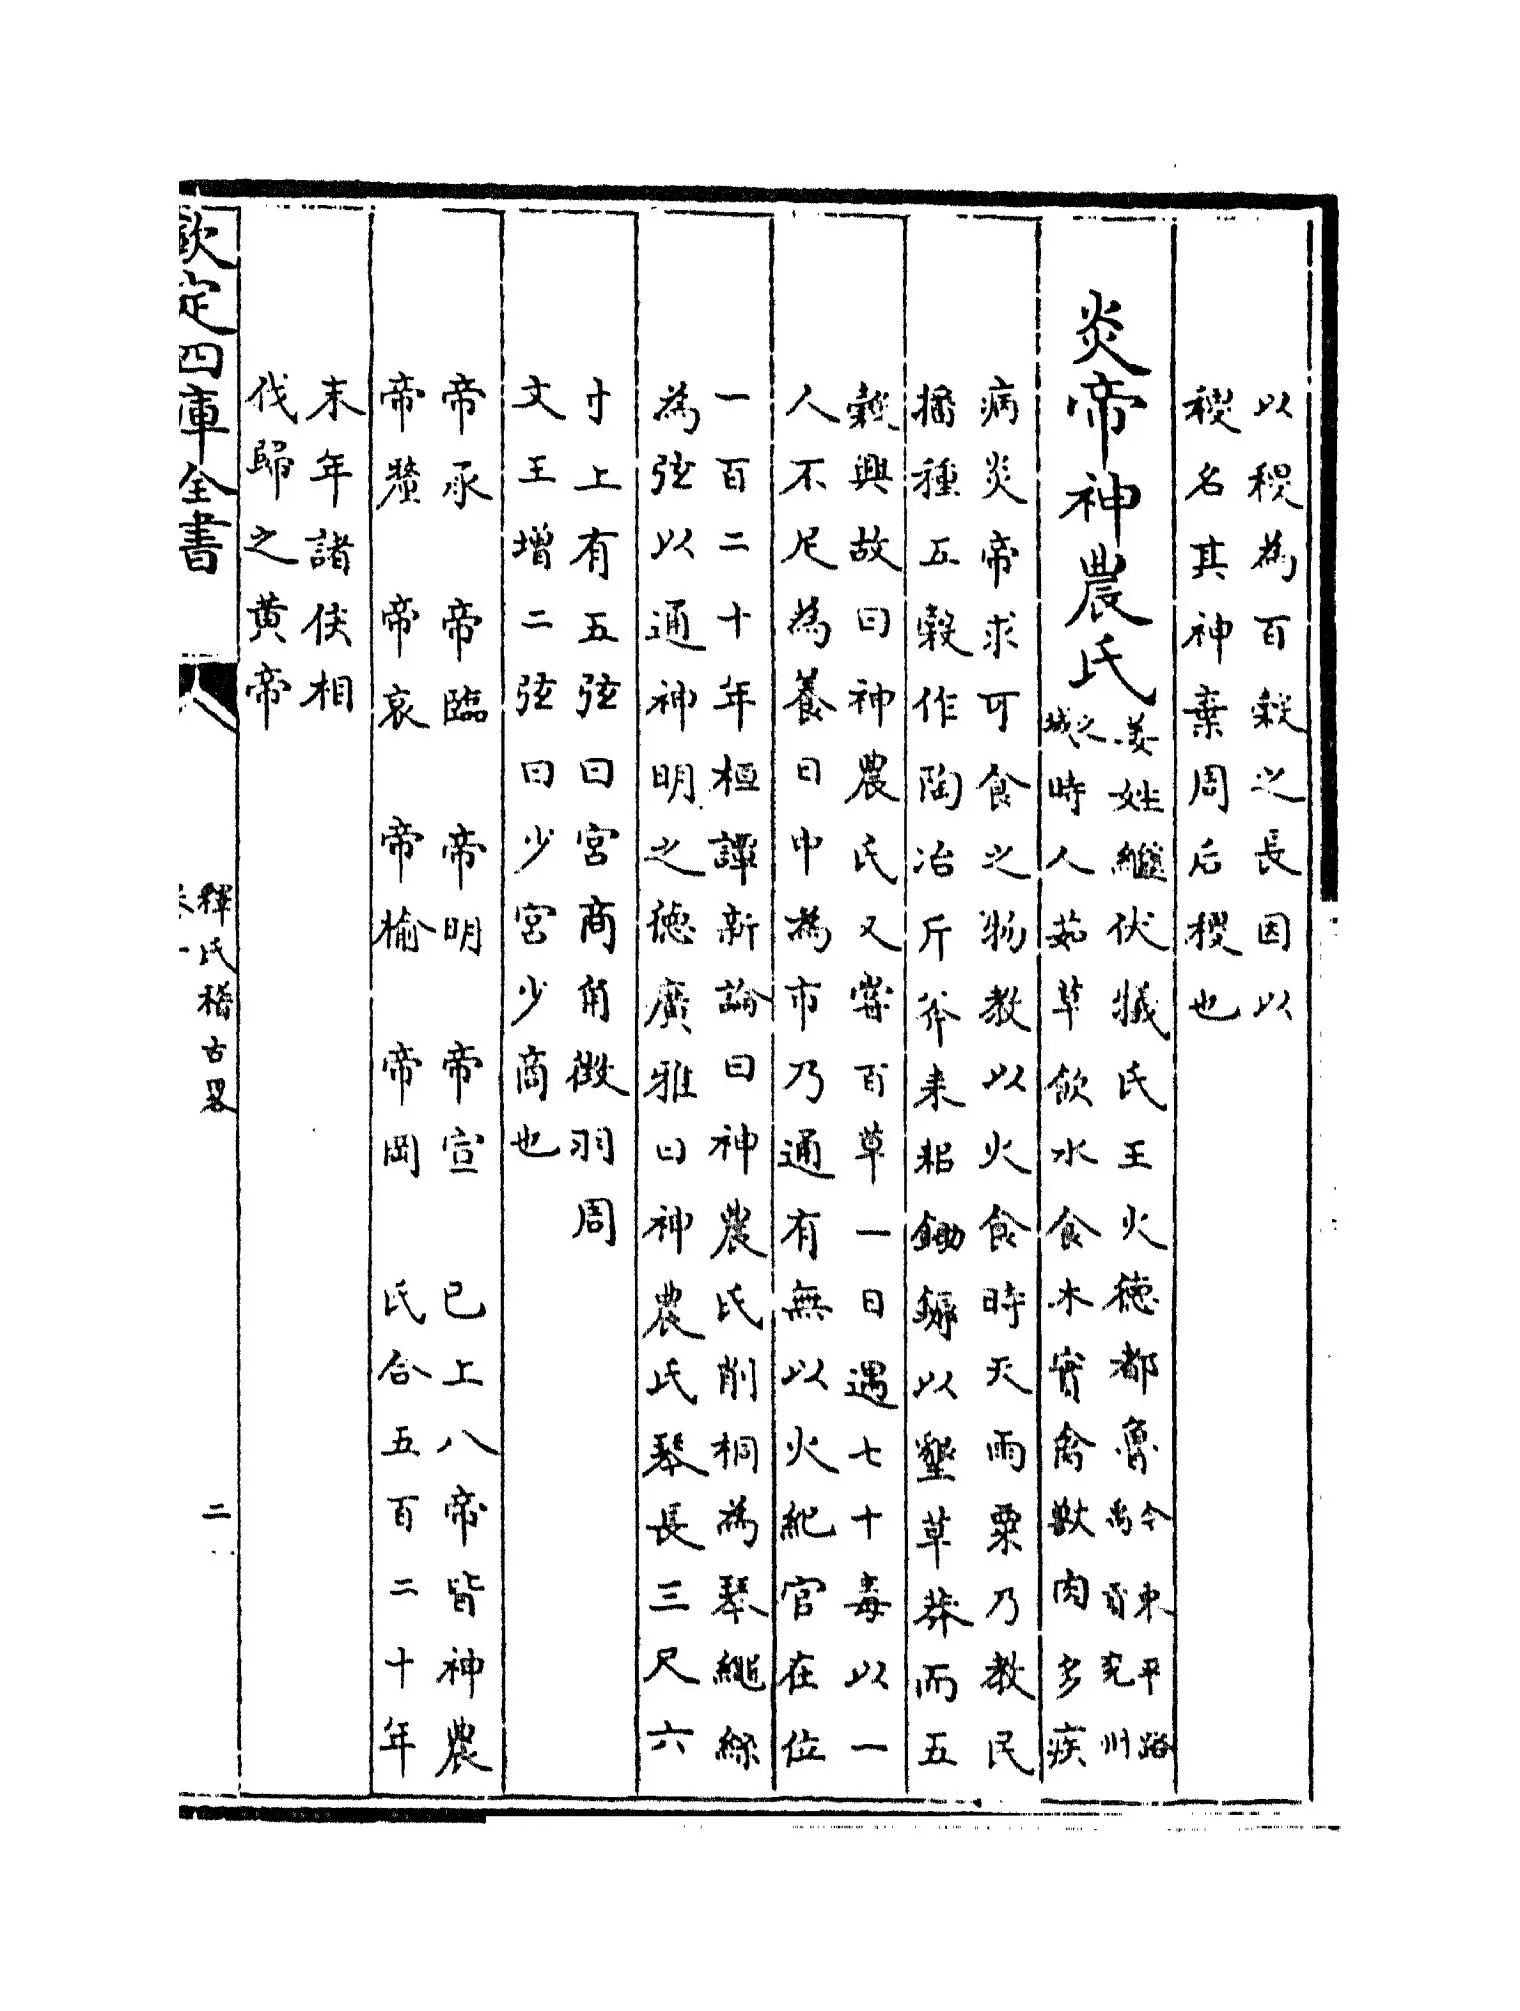 以稷為百穀之長因以
稷名其神棄周后稷也
炎帝神農氏
姜姓繼伏犧氏王火德都魯
今東平路
禹貢兖州
之域
時人茹草飲水食木實禽獸肉多疾
病炎帝求可食之物教以火食時天雨粟乃教民
播種五穀作陶冶斤斧耒耜鋤鎒以墾草莽而五
穀興故曰神農氏又嘗百草一日遇七十毒以一
人不足為養日中為市乃通有無以火紀官在位
一百二十年桓譚新論曰神農氏削桐為琴繩絲
為弦以通神明之徳廣雅曰神農氏琴長三尺六
寸上有五弦曰宮商角徵羽周
文王增二弦曰少宮少商也
帝承 帝臨 帝明 帝宣 已上八帝皆神農
帝釐 帝哀 帝榆 帝岡 氏合五百二十年
末年諸侯相
伐歸之黄帝
欽定四庫全書
釋氏稽古畧
卷一
二